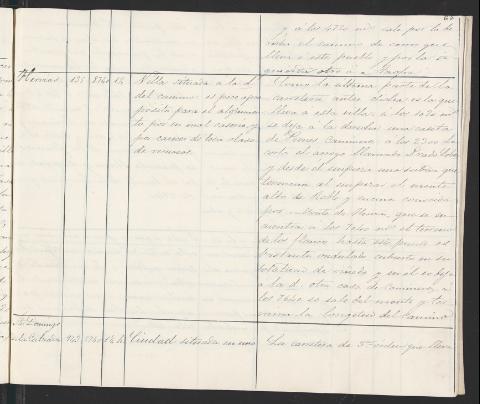 y á los 4720 mts sale por la de
recha el camino de carros que
lleva a este pueblo y por la iz
quierda otro a Najera
Hervias 135 8740 1¾ Villa situada a la da
del camino: es poco apro
posito para el alojamien
to por su mal caserio y
por carecer de toda clase
de recursos
Como la ultima, parte de la
carretera antes dicha es la que
lleva a esta villa, a los 1020 mts
se deja a la derecha una caseta
de Peones Camineros, a los 2300 la
corta el arroyo llamado
y desde el empieza una subida que
termina al empezar el monte
alto de Roble y encina conocido
por Monte de Hervias, que se en
cuentra a los 7040 mts el terreno
de los flancos hasta este punto es
bastante ondulado cubierto en su
totalidad de viñedo y en el se deja
a la da otra casa de camineros, a
los 7640 se sale del monte y ter
mina la longitud del camino
Sto Domingo
de la Calzada 943 Ciudad situada en una
La carretera de 3er orden que lleva